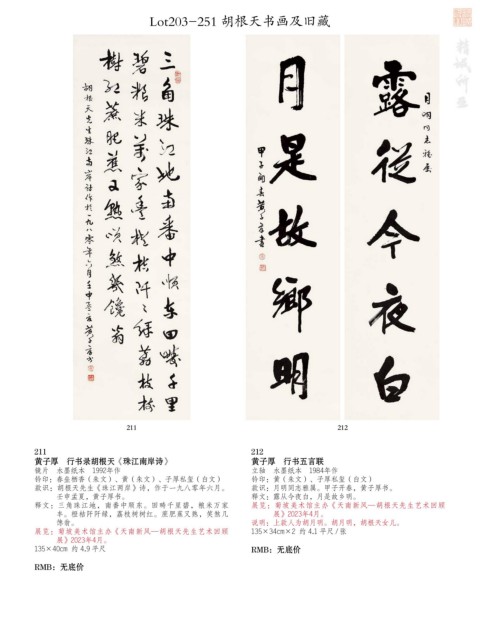 Lot203-251 胡根天书画及旧藏
三角珠江地南番中顺东田畴千里
碧粮米万家丰橙柚阡阡绿荔枝树
树红蔗肥蕉又熟笑煞几馋翁
胡根天先生珠江南岸诗作于一九八零年六月壬申孟夏黄子厚书
露從今夜白
月明同志雅属
月是故鄉明
甲子開春黄子厚書
211
212
211
黄子厚 行书录胡根天《珠江南岸诗》
镜片 水墨纸本 1992年作
款识：胡根天先生《珠江南岸》诗，作于一九八零年六月。
壬申孟夏，黄子厚书。
释文：三角珠江地，南番中顺东。田畴千里碧，粮米万家
丰。橙柚阡阡绿，荔枝树树红。蔗肥蕉又熟，笑煞几
馋翁。
展览：荀彼美术馆主办《天南新风—胡根天先生艺术回顾
展》2023年4月。
135×40cm 约 4.9 平尺
RMB：无底价
212
黄子厚 行书五言联
立轴 水墨纸本 1984年作
钤印：黄（朱文）、子厚私玺（白文）
款识：月明同志雅属。甲子开春，黄子厚书。
释文：露从今夜白，月是故乡明。
展览：荀彼美术馆主办《天南新风—胡根天先生艺术回顾
展》2023年4月。
说明：上款人为胡月明。胡月明，胡根天女儿。
135×34cm×2 约 4.1 平尺/张
RMB：无底价